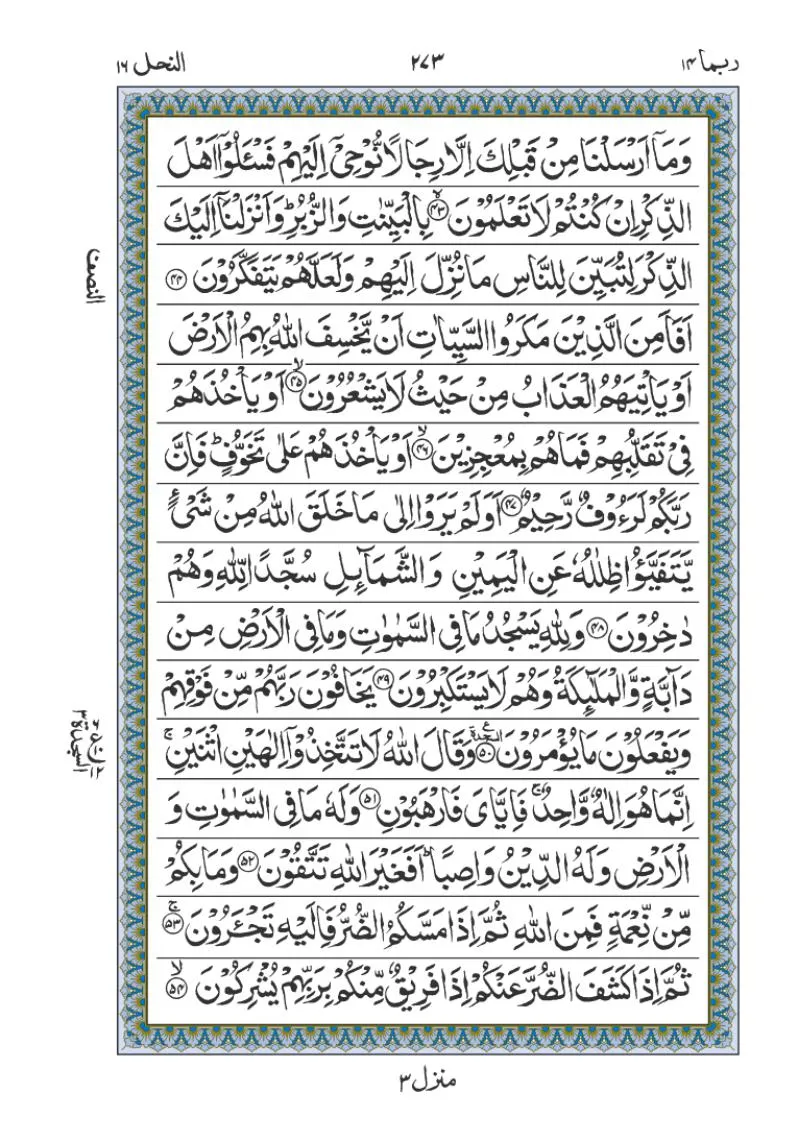 ربما ١٤
٢٧٣
النحل ١٦
وَمَاۤ اَرْسَلْنَا مِنْ قَبْلِكَ اِلَّا رِجَالًا نُّوْحِیْۤ اِلَیْهِمْ فَسْـَٔلُوْۤا اَهْلَ
الذِّكْرِ اِنْ كُنْتُمْ لَا تَعْلَمُوْنَۙ ﴿۴۳﴾ بِالْبَیِّنٰتِ وَالزُّبُرِؕ وَاَنْزَلْنَاۤ اِلَیْكَ
الذِّكْرَ لِتُبَیِّنَ لِلنَّاسِ مَا نُزِّلَ اِلَیْهِمْ وَلَعَلَّهُمْ یَتَفَكَّرُوْنَ ﴿۴۴﴾
النصف
اَفَاَمِنَ الَّذِیْنَ مَكَرُوا السَّیِّاٰتِ اَنْ یَّخْسِفَ اللّٰهُ بِهِمُ الْاَرْضَ
اَوْ یَاْتِیَهُمُ الْعَذَابُ مِنْ حَیْثُ لَا یَشْعُرُوْنَۙ ﴿۴۵﴾ اَوْ یَاْخُذَهُمْ
فِیْ تَقَلُّبِهِمْ فَمَا هُمْ بِمُعْجِزِیْنَۙ ﴿۴۶﴾ اَوْ یَاْخُذَهُمْ عَلٰی تَخَوُّفٍؕ فَاِنَّ
رَبَّكُمْ لَرَءُوْفٌ رَّحِیْمٌ ﴿۴۷﴾ اَوَلَمْ یَرَوْا اِلٰی مَا خَلَقَ اللّٰهُ مِنْ شَیْءٍ
یَّتَفَیَّؤُا ظِلٰلُهٗ عَنِ الْیَمِیْنِ وَالشَّمَآىِٕلِ سُجَّدًا لِّلّٰهِ وَهُمْ
دٰخِرُوْنَ ﴿۴۸﴾ وَلِلّٰهِ یَسْجُدُ مَا فِی السَّمٰوٰتِ وَمَا فِی الْاَرْضِ مِنْ
دَآبَّةٍ وَّالْمَلٰٓىِٕكَةُ وَهُمْ لَا یَسْتَكْبِرُوْنَ ﴿۴۹﴾ یَخَافُوْنَ رَبَّهُمْ مِّنْ فَوْقِهِمْ
وَیَفْعَلُوْنَ مَا یُؤْمَرُوْنَ ﴿۵۰﴾ وَقَالَ اللّٰهُ لَا تَتَّخِذُوْۤا اِلٰهَیْنِ اثْنَیْنِۚ
السجدة ٣
اِنَّمَا هُوَ اِلٰهٌ وَّاحِدٌۚ فَاِیَّایَ فَارْهَبُوْنِ ﴿۵۱﴾ وَلَهٗ مَا فِی السَّمٰوٰتِ وَ
الْاَرْضِ وَلَهُ الدِّیْنُ وَاصِبًاؕ اَفَغَیْرَ اللّٰهِ تَتَّقُوْنَ ﴿۵۲﴾ وَمَا بِكُمْ
مِّنْ نِّعْمَةٍ فَمِنَ اللّٰهِ ثُمَّ اِذَا مَسَّكُمُ الضُّرُّ فَاِلَیْهِ تَجْـَٔرُوْنَۚ ﴿۵۳﴾
ثُمَّ اِذَا كَشَفَ الضُّرَّ عَنْكُمْ اِذَا فَرِیْقٌ مِّنْكُمْ بِرَبِّهِمْ یُشْرِكُوْنَۙ ﴿۵۴﴾
منزل ٣